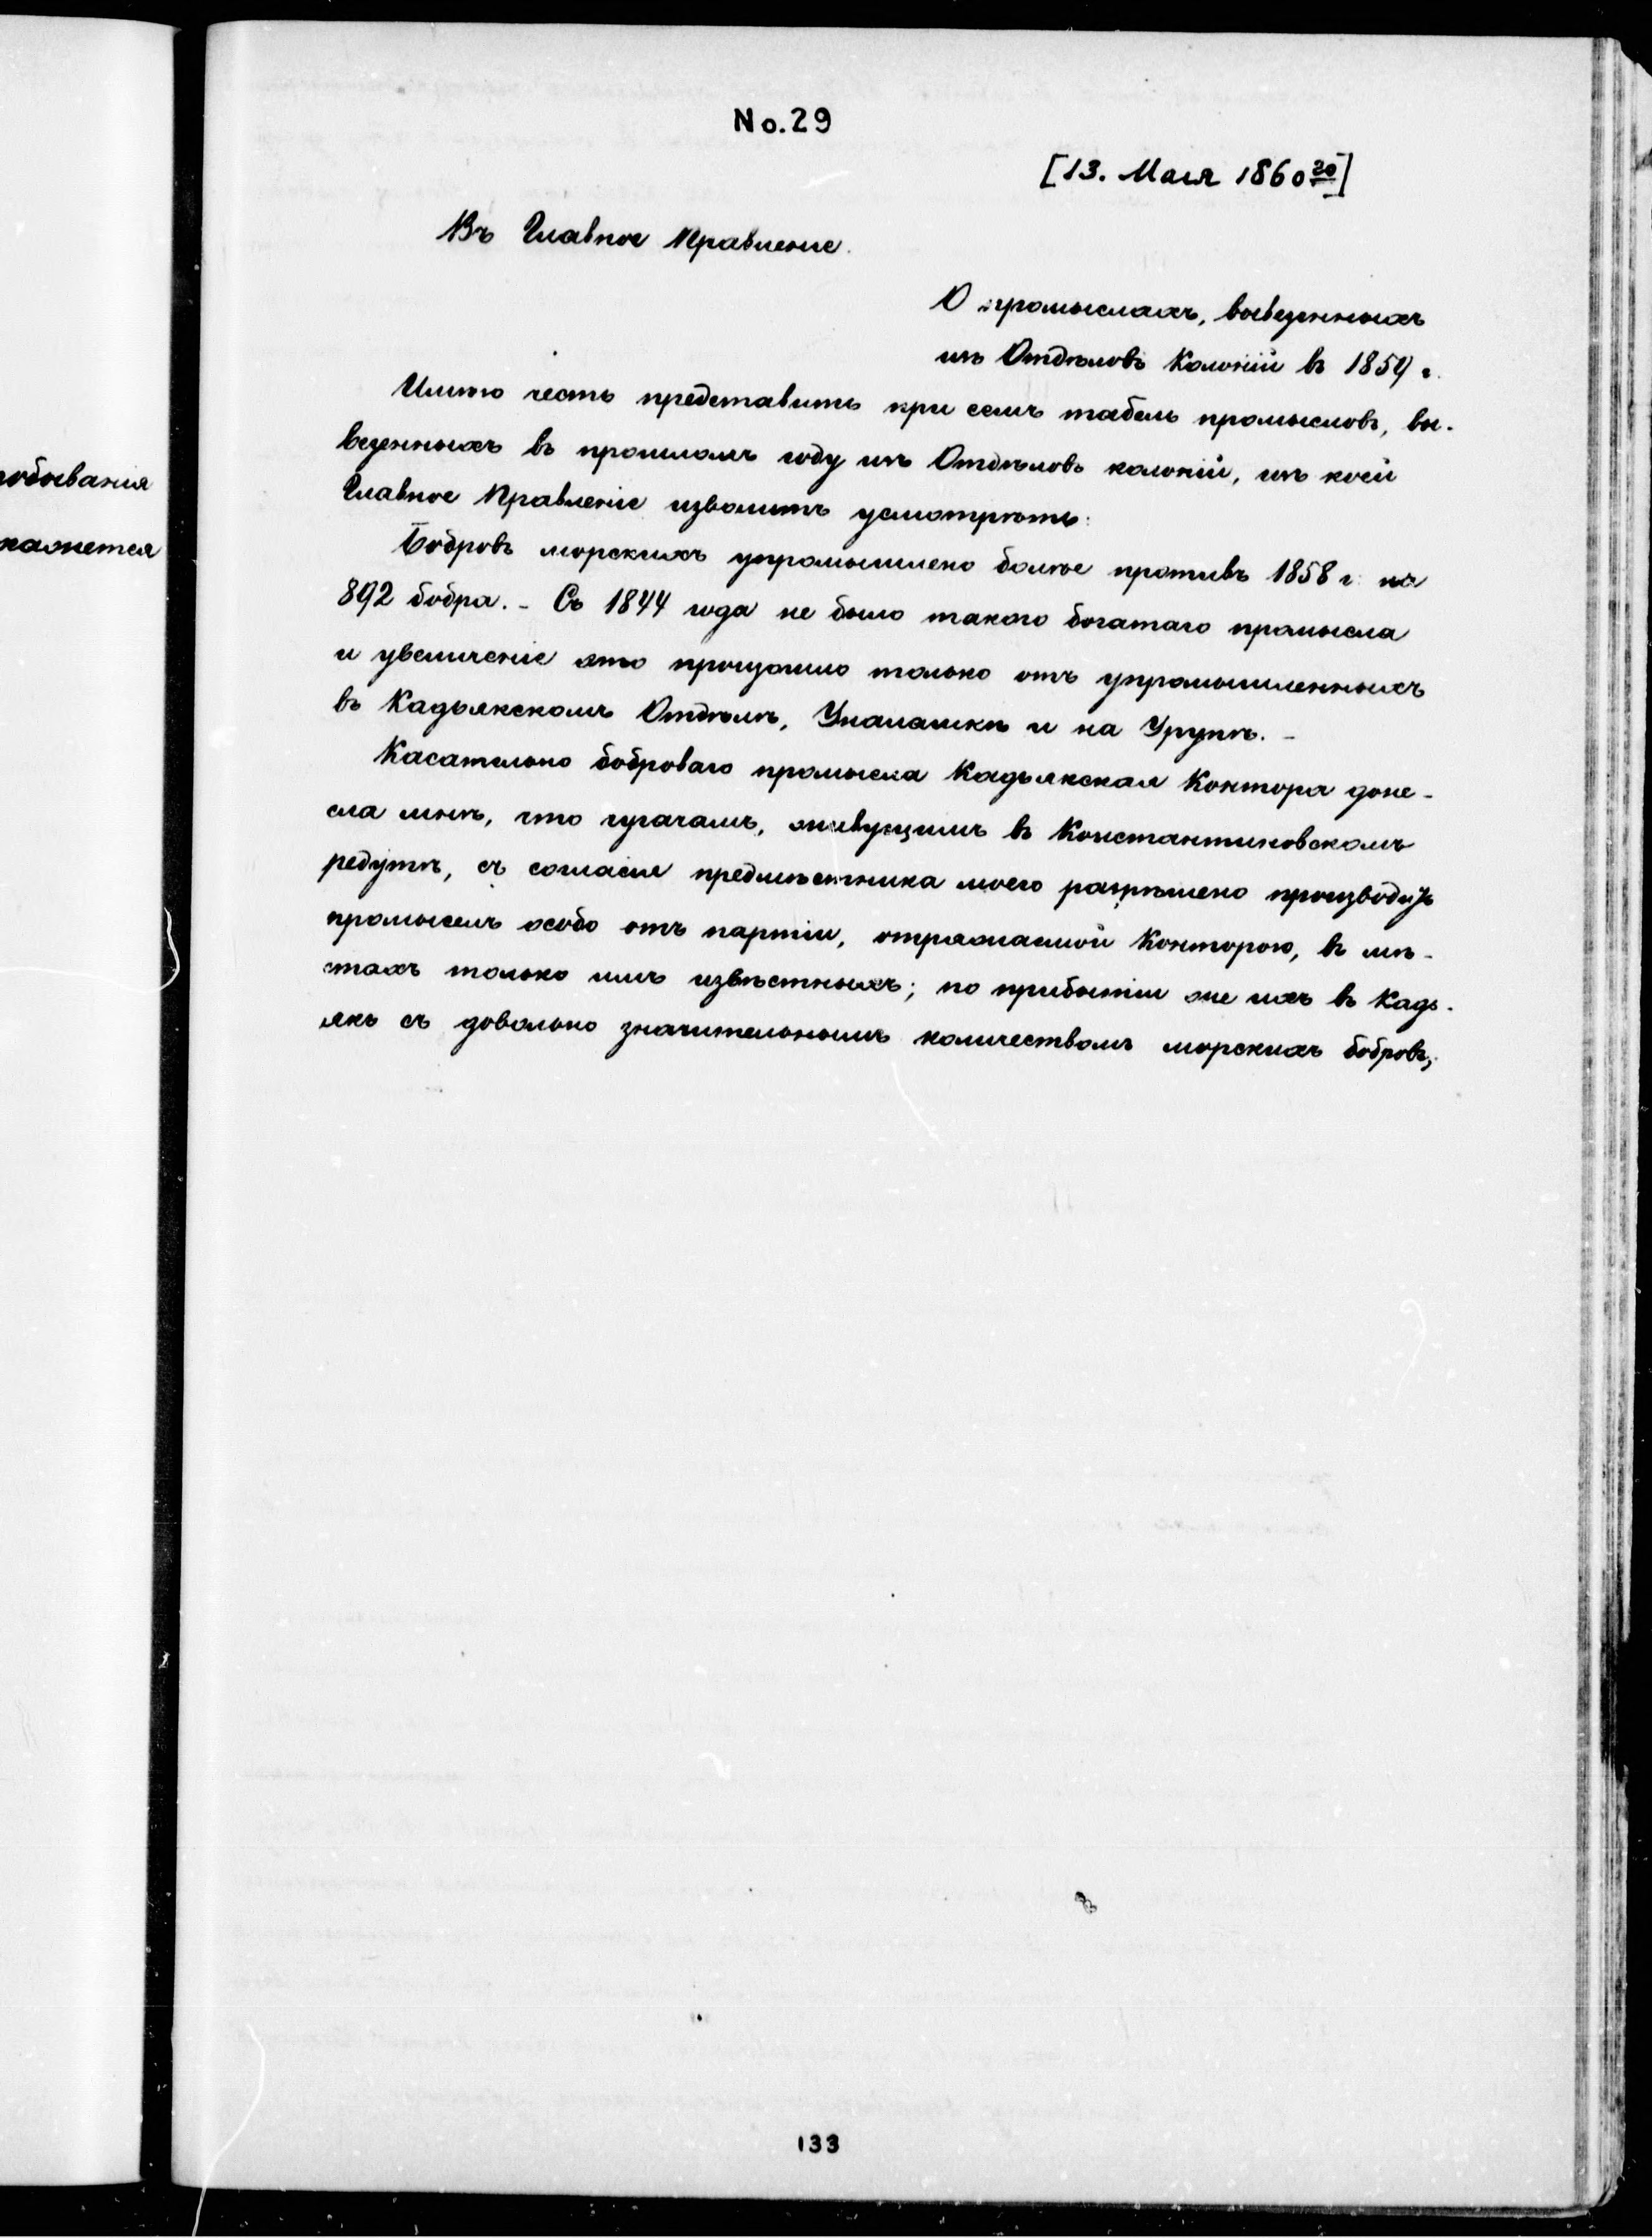 No. 29
[13. Мая 1860го]
Въ Главное Правленіе.
О промыслахъ, вывезенныхъ
изъ Отдѣловъ Колоній въ 1859 г.
Имѣю честь представить при семъ табель промысловъ, вы-
везенныхъ въ прошломъ году изъ Отдѣловъ колоній, изъ коей
Главное Правленіе изволитъ усмотрѣть:
Бобровъ морскихъ упромышлено болѣе противъ 1858 г. на
892 бобра. - Съ 1844 года не было такого богатаго промысла
и увеличеніе это произошло только отъ упромышленныхъ
въ Кадьякскомъ Отдѣлѣ, Уналашкѣ и на Урупѣ. -
Касательно боброваго промысла Кадьякская Контора доне-
сла мнѣ, что угачамъ, живущимъ въ Константиновскомъ
редутѣ, съ согласія предмѣстника моего разрѣшено производить
промыселъ особо отъ партіи, отряжаемой Конторою, въ мѣ-
стахъ только имъ извѣстныхъ; по прибытіи же ихъ въ Кадь-
якъ съ довольно значительнымъ количествомъ морскихъ бобровъ,
133
обыванія
кажется